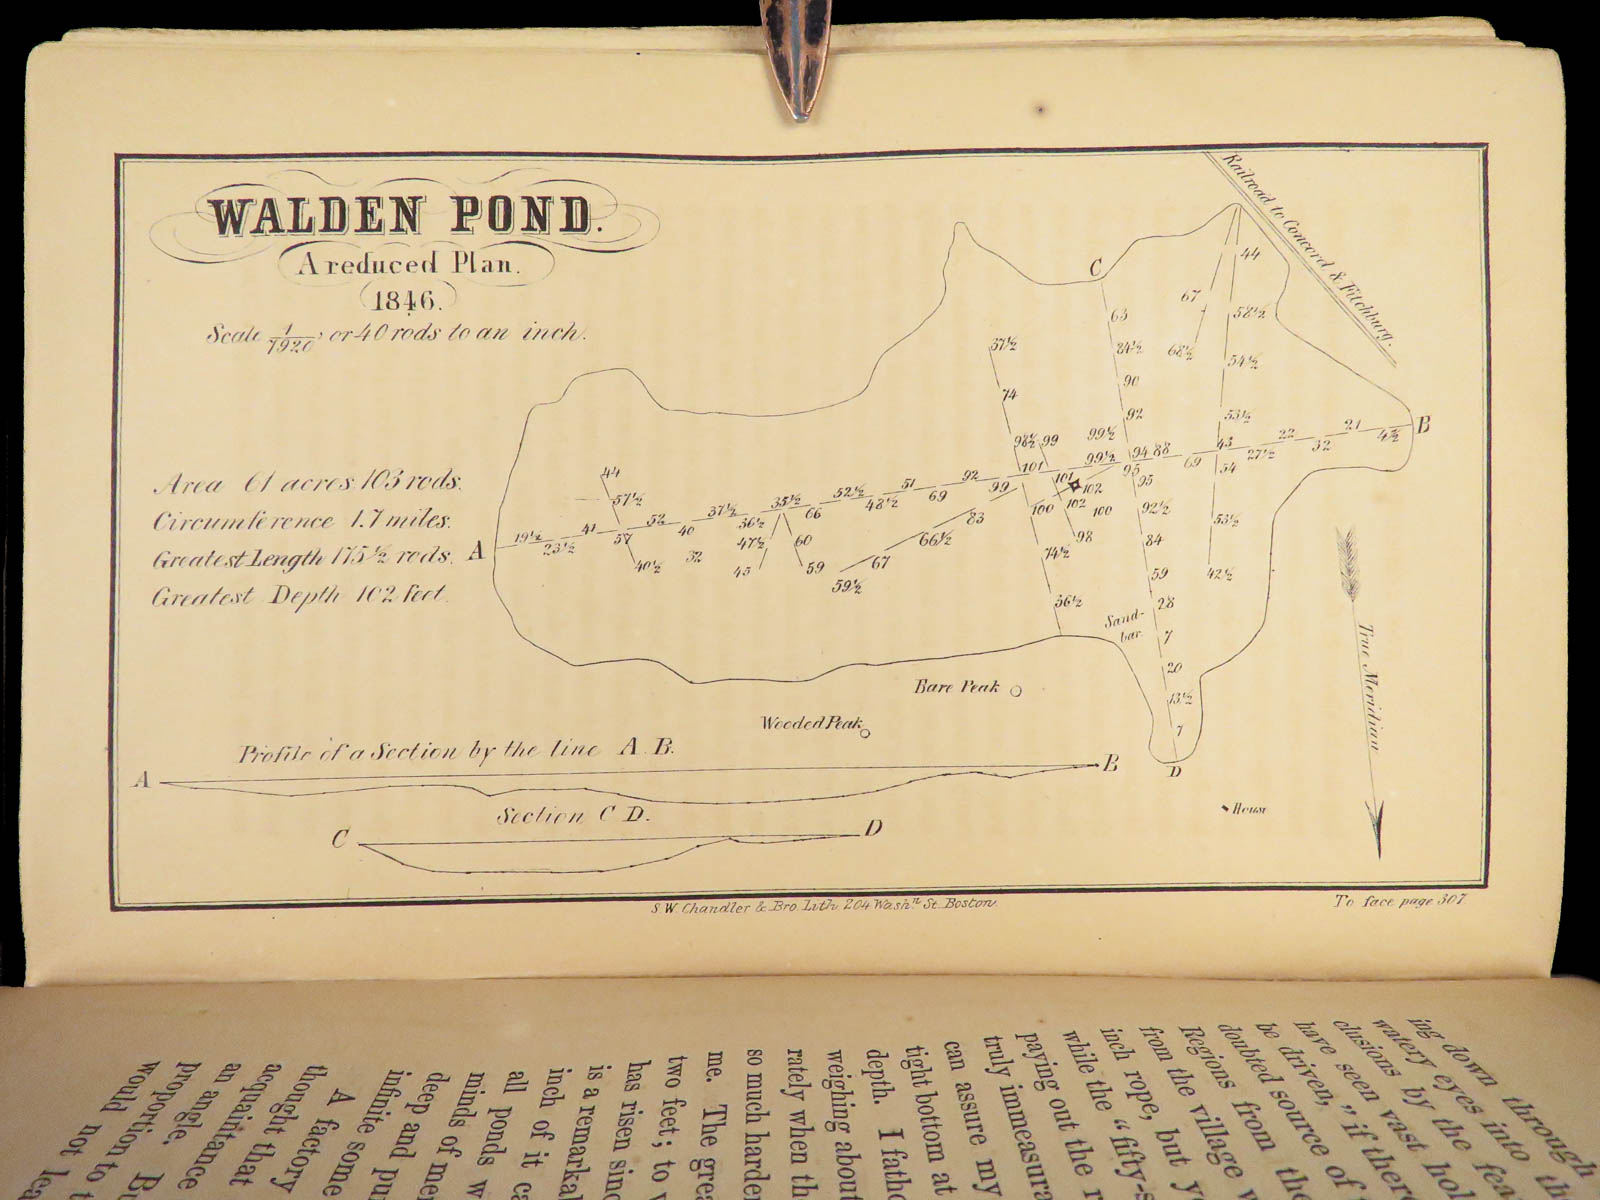 WALDEN POND.
A reduced Plan.
1846.
Scale 1/1920, or 40 rods to an inch.
Area 61 acres 103 rods.
Circumference 1.7 miles.
Greatest Length 175½ rods.
Greatest Depth 102 feet.
Railroad to Concord & Fitchburg.
C
44
67
63
58½
37½
84½
68½
54½
90
74
92
53½
B
98½ 99
99½
94 88
43
22
21
4½
101
99½
95
69
54
27½
32
44
57½
35½
52½
51
92
99
101
102
95
37½
66
48½
69
100
102
100
92½
53½
A
19½
41
52
36½
83
23½
57
40
47½
60
66½
98
84
40½
32
45
59
67
74½
59½
59
42½
36½
28
Sand-
bar
7
20
13½
7
D
True Meridian
Bare Peak
Wooded Peak
House
Profile of a Section by the line A. B.
A
B
Section C D.
C
D
S. W. Chandler & Bro. Lith. 204 Washn St. Boston.
To face page 307.
ing down through
watery eyes into th
clusions by the fea
have seen vast hol
be driven," if ther
doubted source of
Regions from the
from the village
inch rope, but y
while the "fifty-s
paying out the r
truly immeasura
can assure my
tight bottom at
depth. I fatho
weighing about
rately when th
so much harder
me. The grea
two feet; to
has risen sinc
is a remarkal
inch of it ca
all ponds w
minds of me
deep and pu
infinite some
A factory
thought that
acquaintance
an angle. Bu
proportion to t
would not lea